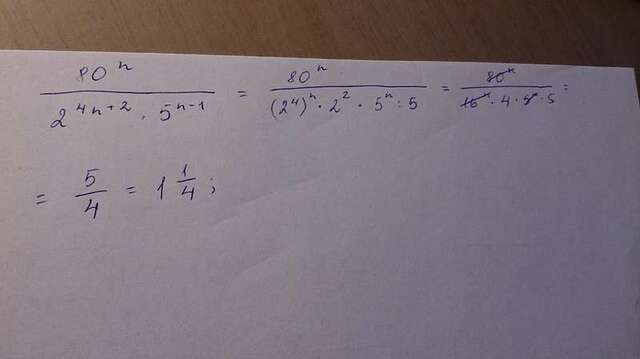 80ⁿ / (2⁴ⁿ⁺² · 5ⁿ⁻¹) = 80ⁿ / ((2⁴)ⁿ · 2² · 5ⁿ : 5) = 80ⁿ / (16ⁿ · 4 · 5ⁿ · 5) =
= 5/4 = 1 1/4 ;